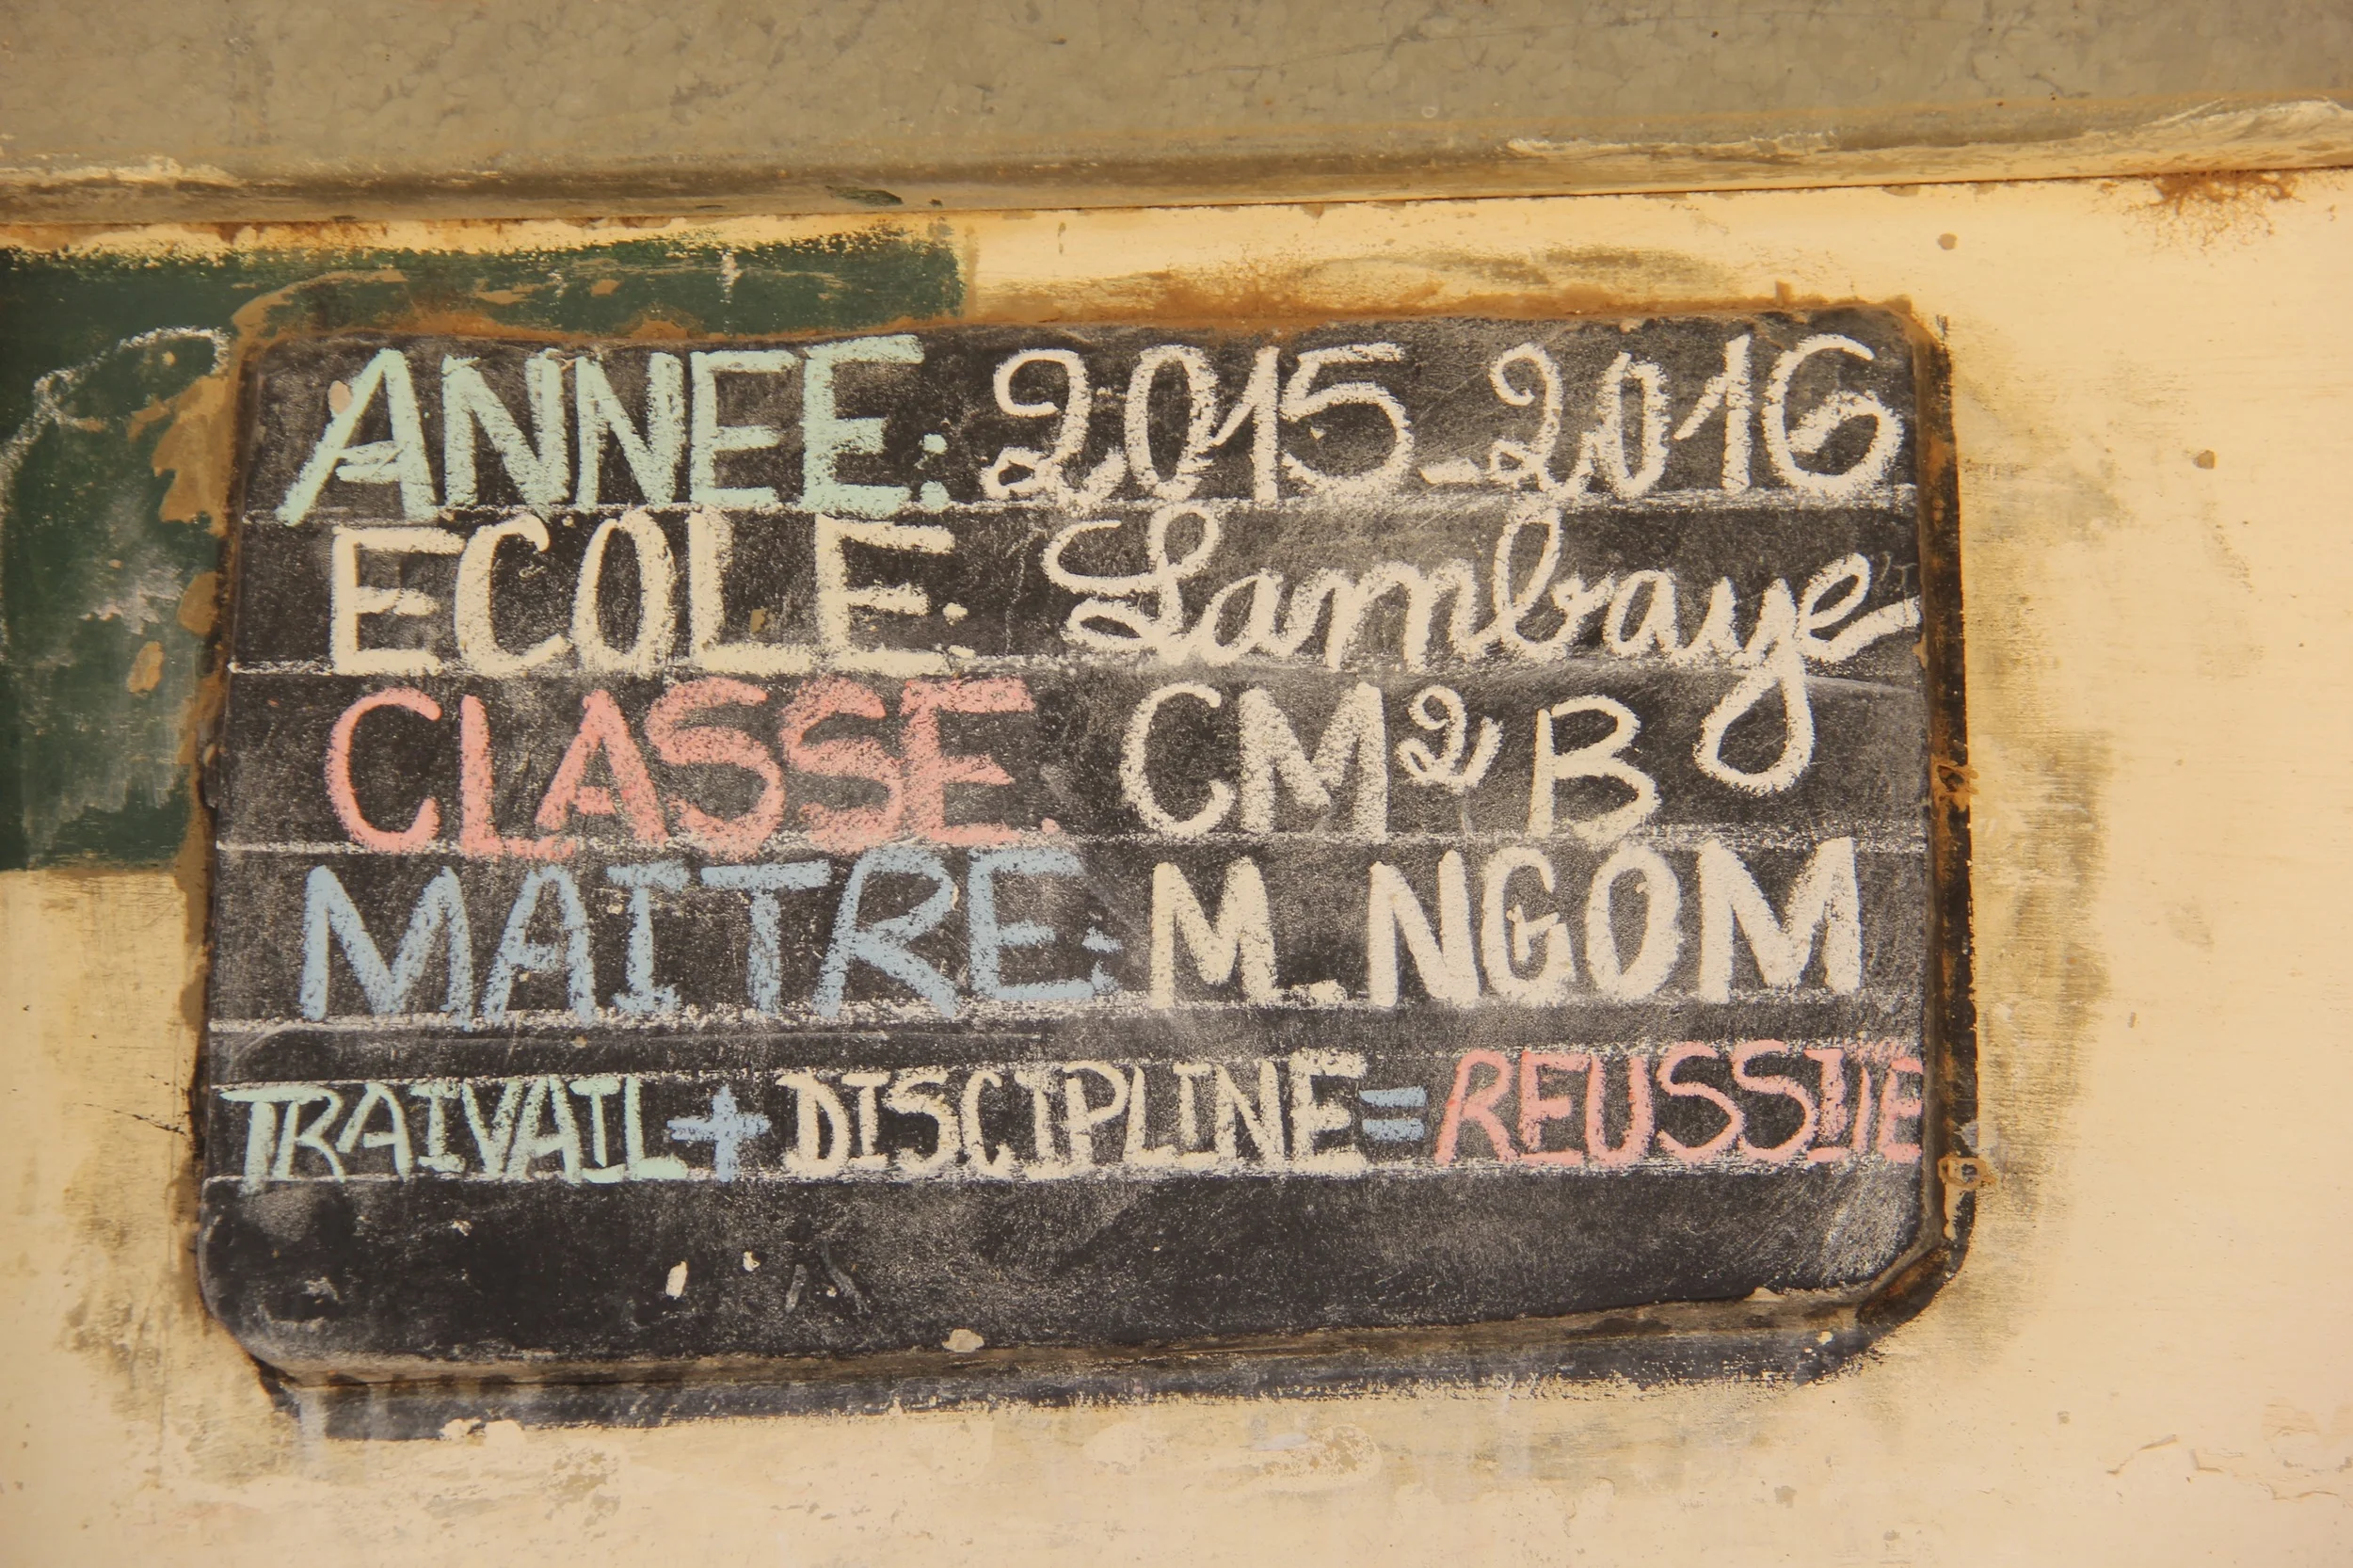 ANNEE: 2015-2016
ECOLE: Lambaye
CLASSE: CM2 B
MAITRE: M. NGOM
TRAIVAIL + DISCIPLINE = REUSSITE